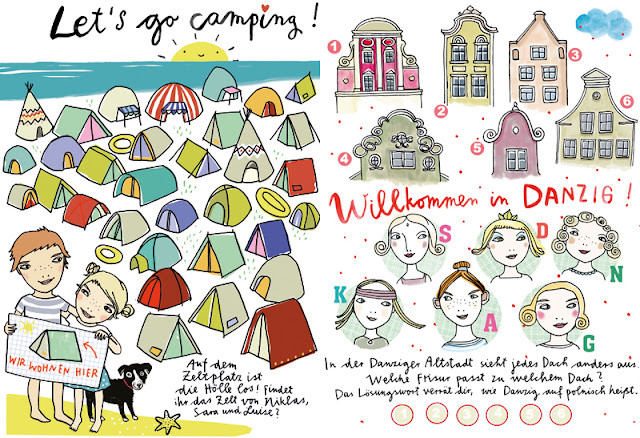 Let's go camping!
WIR WOHNEN HIER
Auf dem
Zeltplatz ist
die Hölle los! Findet
ihr das Zelt von Niklas,
Sara und Luise?
1
2
3
4
5
6
Willkommen in DANZIG!
S
D
N
K
A
G
In der Danziger Altstadt sieht jedes Dach anders aus.
Welche Frisur passt zu welchem Dach?
Das Lösungswort verrät dir, wie Danzig auf polnisch heißt.
1 2 3 4 5 6